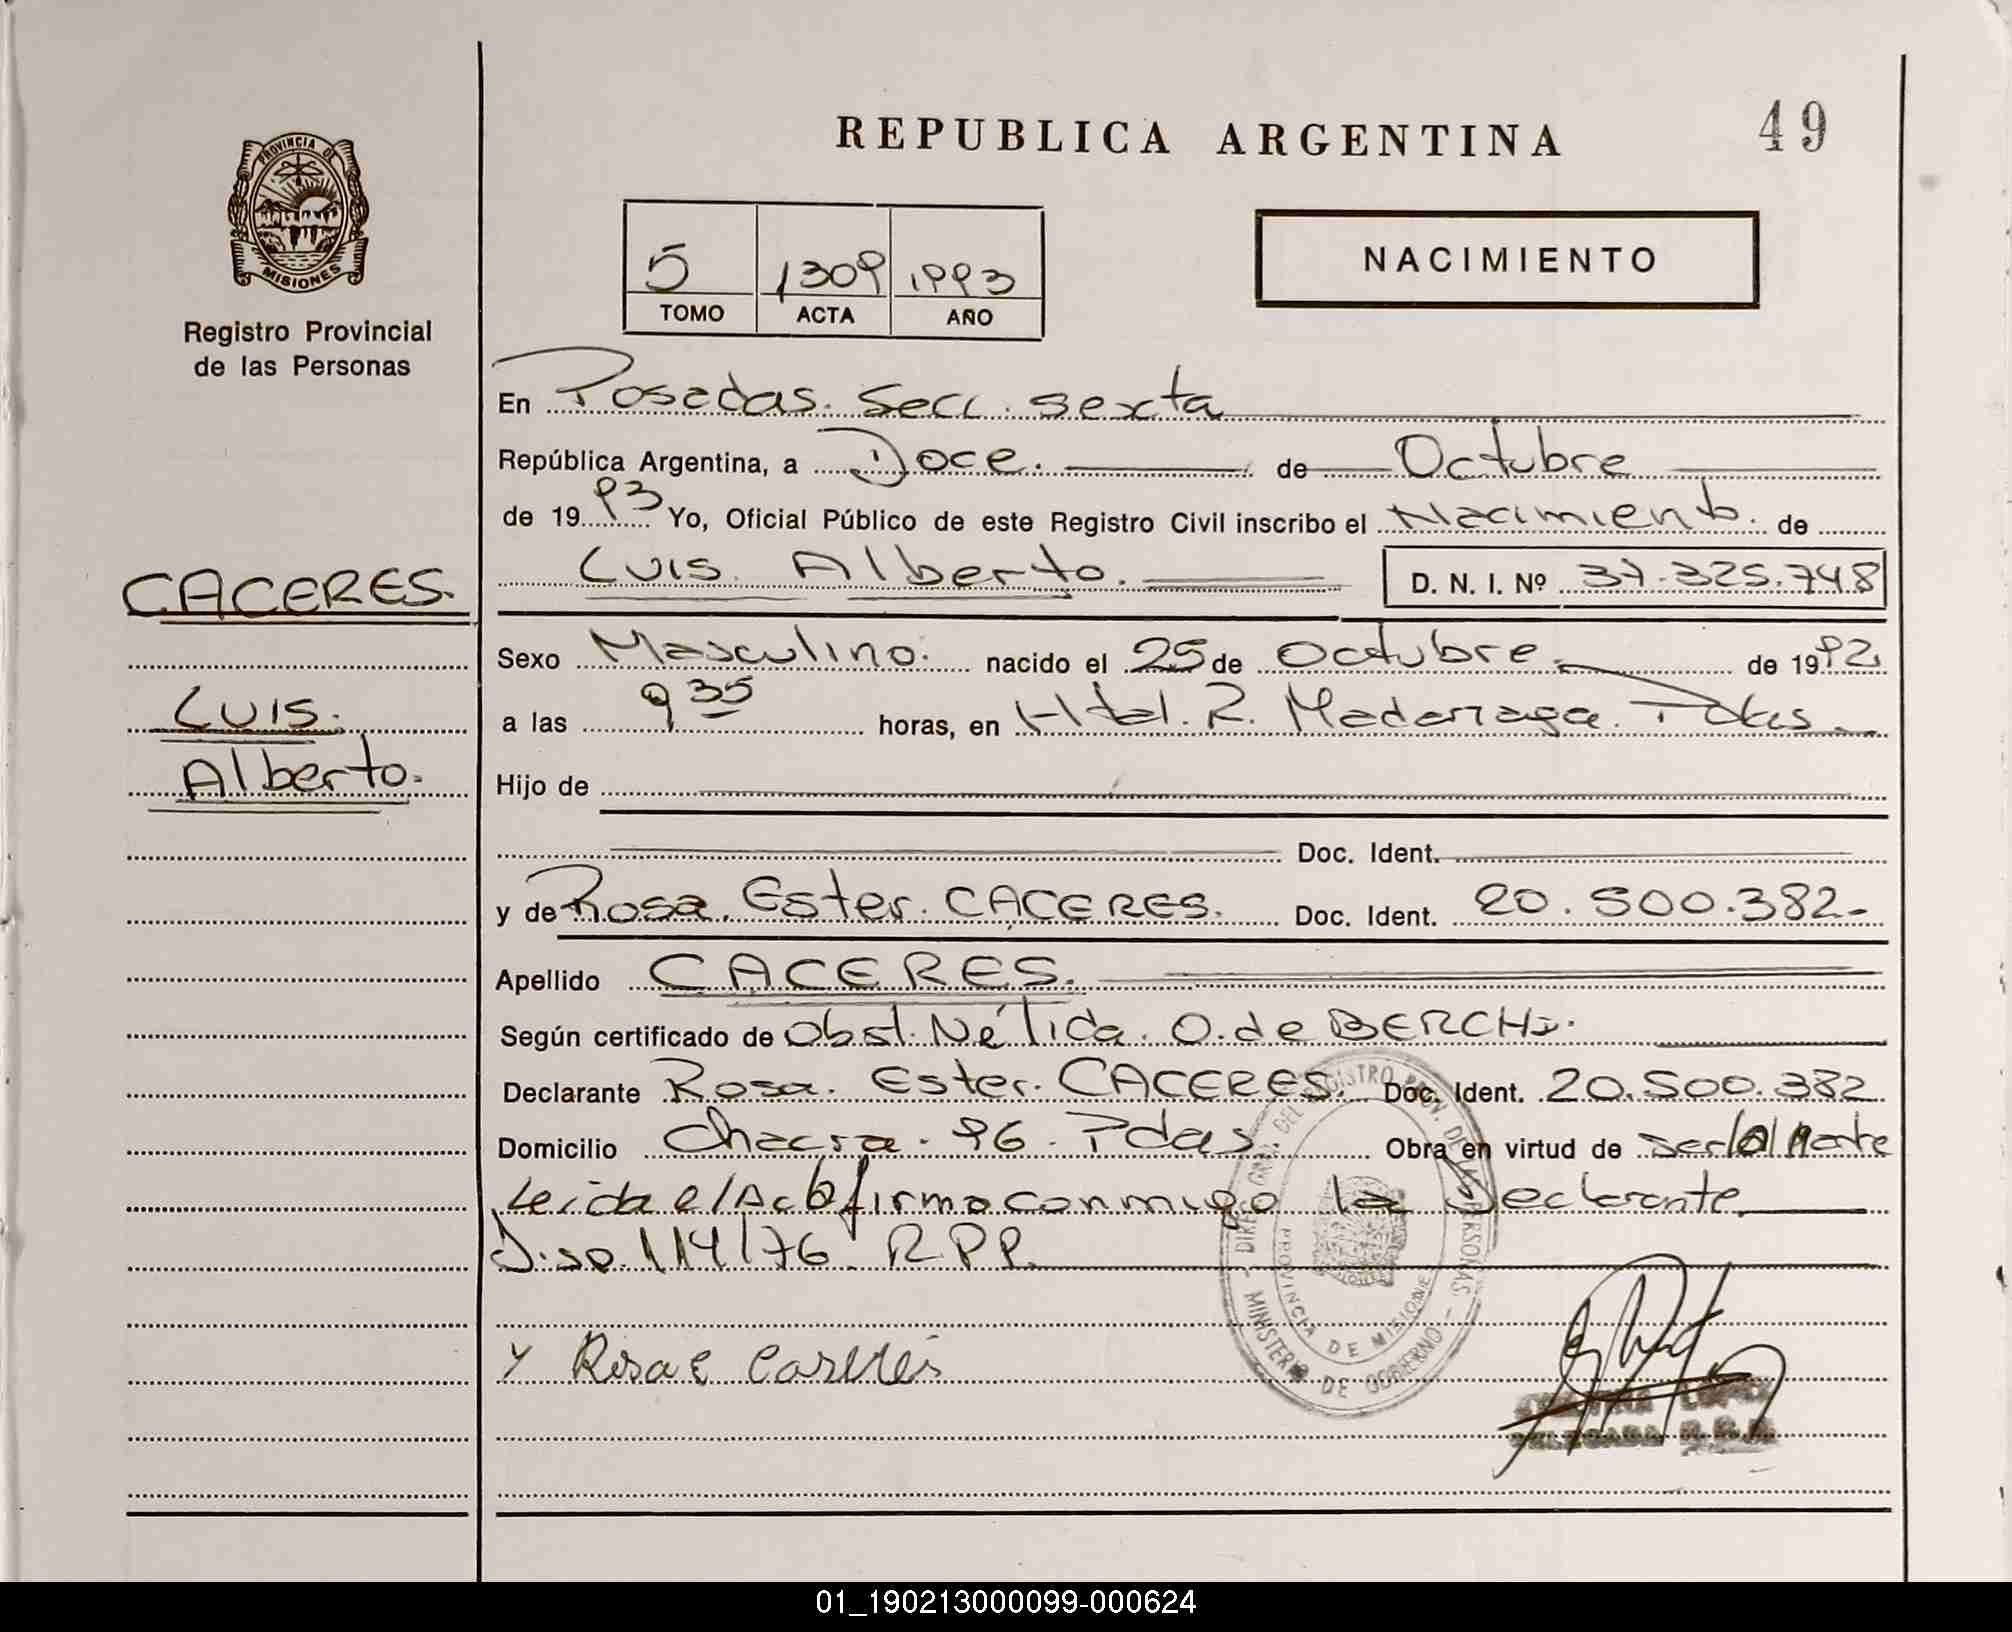 REPUBLICA ARGENTINA
49
PROVINCIA DE
MISIONES
Registro Provincial
de las Personas
5 1309 1993
TOMO ACTA AÑO
NACIMIENTO
En Posadas. Secc. Sexta
República Argentina, a Doce. de Octubre
de 1993 Yo, Oficial Público de este Registro Civil inscribo el Nacimiento. de
CACERES.
Luis. Alberto. D. N. I. Nº 37.325.748
Sexo Masculino. nacido el 25 de Octubre. de 1992
Luis.
a las 9 35 horas, en Htal. R. Madariaga. Pdas
Alberto.
Hijo de
Doc. Ident.
y de Rosa. Ester. CACERES. Doc. Ident. 20.500.382-
Apellido CACERES.
Según certificado de Obst. Nélida. O. de BERCHI.
Declarante Rosa. Ester. CACERES. Doc. Ident. 20.500.382
Domicilio Chacra. 96. Pdas. Obra en virtud de ser la Madre
Leida el Acta firma conmigo la Declarante
Disp. 114/76 RPP.
DIREC. GRAL. DEL REGISTRO PROV. DE LAS PERSONAS
PROVINCIA DE MISIONES
- MINISTERIO DE GOBIERNO -
DELEGADA R.P.P.
01_190213000099-000624